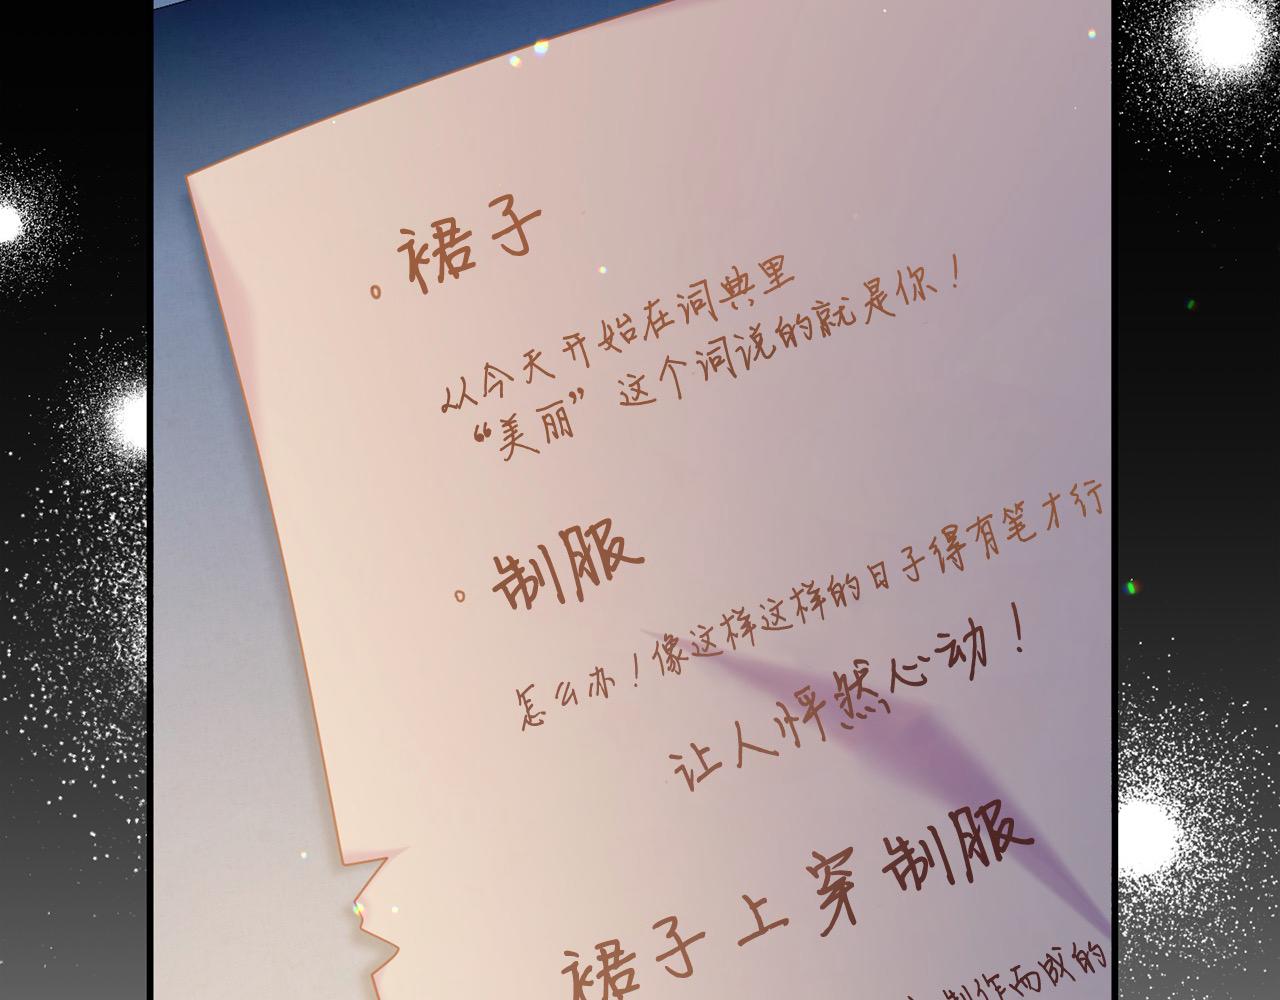 。裙子
从今天开始在词典里
“美丽”这个词说的就是你！
。制服
怎么办！像这样这样的日子得有笔才行
让人怦然心动！
裙子上穿制服
制作而成的